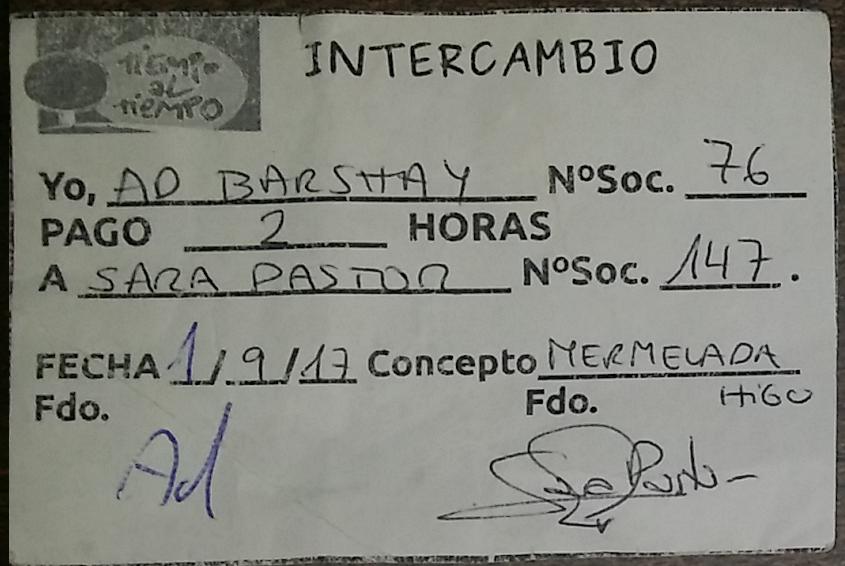 TiEMPo
AL
TiEMPO
INTERCAMBIO
Yo, AD BARSHAY NºSoc. 76
PAGO 2 HORAS
A SARA PASTOR NºSoc. 147.
FECHA 1/9/17 Concepto MERMELADA
HiGO
Fdo. Fdo.
Ad Sara Pastor